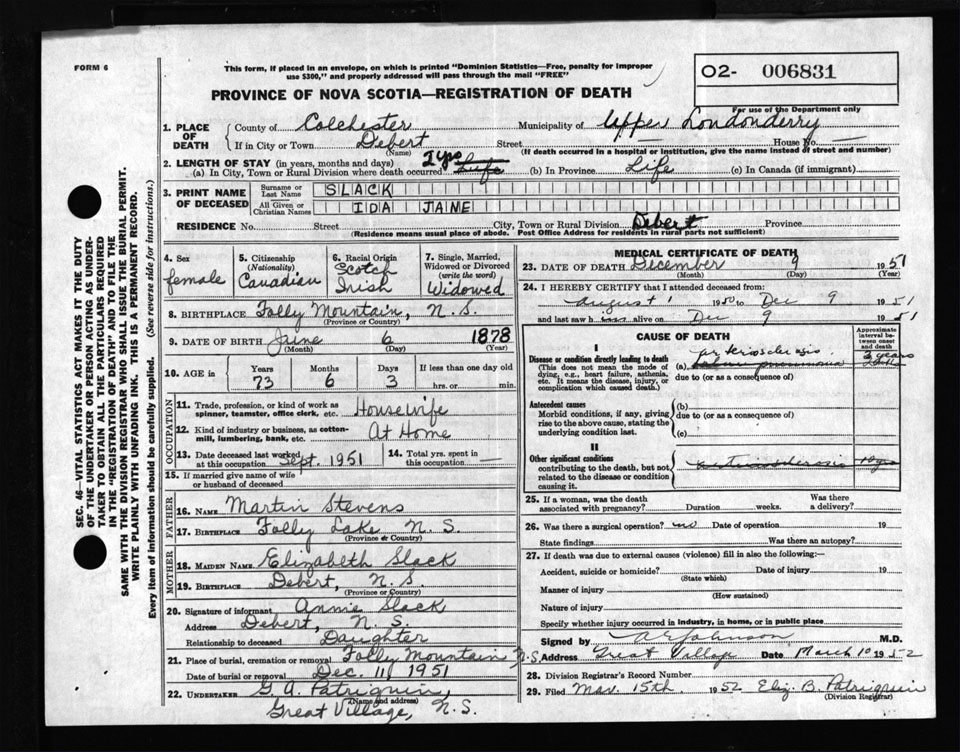 FORM 6
This form, if placed in an envelope, on which is printed "Dominion Statistics—Free, penalty for improper
use $300," and properly addressed will pass through the mail "FREE"
02- 006831
For use of the Department only
PROVINCE OF NOVA SCOTIA—REGISTRATION OF DEATH
SEC. 46—VITAL STATISTICS ACT MAKES IT THE DUTY
OF THE UNDERTAKER OR PERSON ACTING AS UNDER-
TAKER TO OBTAIN ALL THE PARTICULARS REQUIRED
IN THE "REGISTRATION OF DEATH" AND TO FILE THE
SAME WITH THE DIVISION REGISTRAR WHO SHALL ISSUE THE BURIAL PERMIT.
WRITE PLAINLY WITH UNFADING INK. THIS IS A PERMANENT RECORD.
Every item of information should be carefully supplied. (See reverse side for instructions.)
1. PLACE OF DEATH County of Colchester Municipality of Upper Londonderry
If in City or Town Debert (Name) Street House No. —
(If death occurred in a hospital or institution, give the name instead of street and number)
2. LENGTH OF STAY (in years, months and days)
(a) In City, Town or Rural Division where death occurred 2 yrs Life (b) In Province Life (c) In Canada (if immigrant)
3. PRINT NAME OF DECEASED Surname or Last Name SLACK
All Given or Christian Names IDA JANE
RESIDENCE No. Street City, Town or Rural Division Debert Province
(Residence means usual place of abode. Post Office Address for residents in rural parts not sufficient)
4. Sex female
5. Citizenship (Nationality) Canadian
6. Racial Origin Scotch Irish
7. Single, Married, Widowed or Divorced (write the word) Widowed
8. BIRTHPLACE Folly Mountain, N.S.
(Province or Country)
9. DATE OF BIRTH June 6 1878
(Month) (Day) (Year)
10. AGE in Years 73 Months 6 Days 3 If less than one day hrs. or min.
OCCUPATION
11. Trade, profession, or kind of work as spinner, teamster, office clerk, etc. Housewife
12. Kind of industry or business, as cotton-mill, lumbering, bank, etc. At Home
13. Date deceased last worked at this occupation Sept. 1951 14. Total yrs. spent in this occupation —
15. If married give name of wife or husband of deceased
FATHER
16. NAME Martin Stevens
17. BIRTHPLACE Folly Lake N.S.
(Province or Country)
MOTHER
18. MAIDEN NAME Elizabeth Slack
19. BIRTHPLACE Debert, N.S.
(Province or Country)
20. Signature of informant Annie Slack
Address Debert, N.S.
Relationship to deceased Daughter
21. Place of burial, cremation or removal Folly Mountain N.S.
Date of burial or removal Dec. 11 1951
22. UNDERTAKER G. A. Patriquin,
(Name and address)
Great Village, N.S.
MEDICAL CERTIFICATE OF DEATH
23. DATE OF DEATH December 9 1951
(Month) (Day) (Year)
24. I HEREBY CERTIFY that I attended deceased from:
August 1 1950 to Dec 9 1951
and last saw h alive on Dec 9 1951
CAUSE OF DEATH
Approximate interval between onset and death
I
Disease or condition directly leading to death
(This does not mean the mode of dying, e.g., heart failure, asthenia, etc. It means the disease, injury, or complication which caused death.)
(a) arteriosclerosis 3 years
pneumonia
due to (or as a consequence of)
Antecedent causes
Morbid conditions, if any, giving rise to the above cause, stating the underlying condition last.
(b)
due to (or as a consequence of)
(c)
II
Other significant conditions
contributing to the death, but not related to the disease or condition causing it.
arteriosclerosis 10 yrs
25. If a woman, was the death associated with pregnancy? Duration weeks. Was there a delivery?
26. Was there a surgical operation? no Date of operation 19
State findings Was there an autopsy?
27. If death was due to external causes (violence) fill in also the following:—
Accident, suicide or homicide? Date of injury 19
(State which)
Manner of injury
(How sustained)
Nature of injury
Specify whether injury occurred in industry, in home, or in public place
Signed by A E Johnson M.D.
Address Great Village Date March 10 1952
28. Division Registrar's Record Number
29. Filed Mar. 15th 1952 Eliz. B. Patriquin
(Division Registrar)